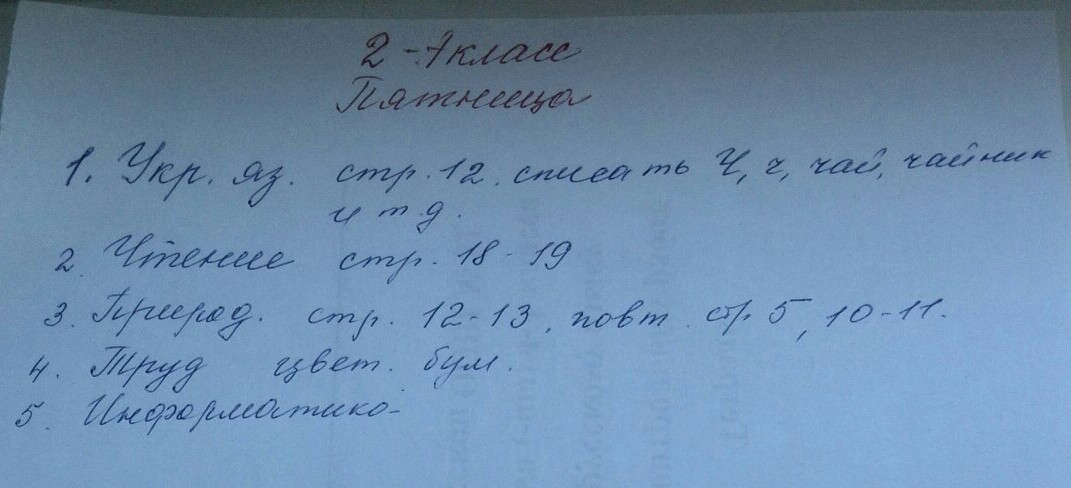 2-А класс
Пятница
1. Укр. яз. стр. 12. списать Ч, ч, чай, чайник
и т д.
2. Чтение стр. 18-19
3. Природ. стр. 12-13, повт. стр. 5, 10-11.
4. Труд цвет. бум.
5. Информатика